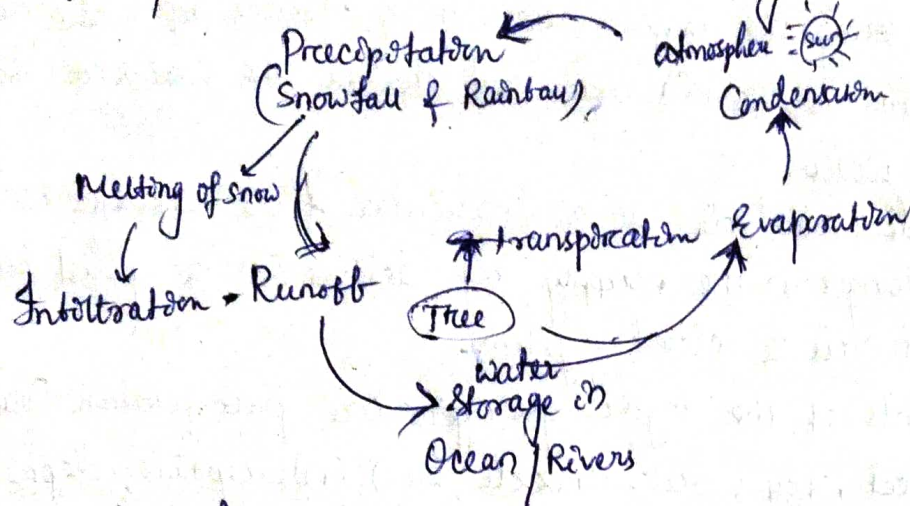 Precipitation
(Snowfall & Rainfall)
atmosphere sun
Condensation
Melting of snow
Evaporation
transpiration
Infiltration Runoff
Tree
water
Storage in
Ocean / Rivers